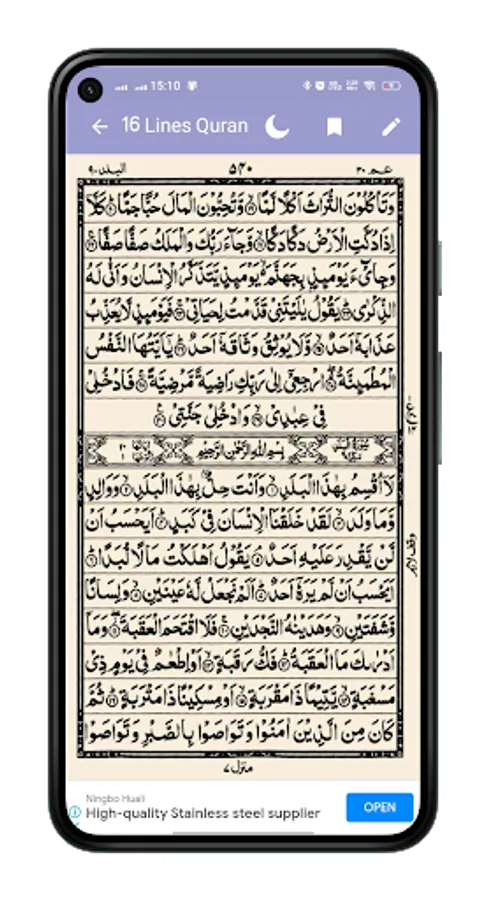 15:10
16 Lines Quran
عـم ٣٠
٥٢٠
البلد ٩٠
وَتَاْكُلُوْنَ التُّرَاثَ اَكْلًا لَّمًّا ۙ وَّتُحِبُّوْنَ الْمَالَ حُبًّا جَمًّا ؕ كَلَّاۤ
اِذَا دُكَّتِ الْاَرْضُ دَكًّا دَكًّا ۙ وَّجَآءَ رَبُّكَ وَالْمَلَكُ صَفًّا صَفًّا ۚ
وَجِایْٓءَ يَوْمَىِٕذٍۭ بِجَهَنَّمَ ۙ يَوْمَىِٕذٍ يَّتَذَكَّرُ الْاِنْسَانُ وَاَنّٰى لَهُ
الذِّكْرٰى ؕ يَقُوْلُ يٰلَيْتَنِىْ قَدَّمْتُ لِحَيَاتِىْ ۚ فَيَوْمَىِٕذٍ لَّا يُعَذِّبُ
عَذَابَهٗۤ اَحَدٌ ۙ وَّلَا يُوْثِقُ وَثَاقَهٗۤ اَحَدٌ ؕ يٰۤاَيَّتُهَا النَّفْسُ
الْمُطْمَىِٕنَّةُ ۖ ارْجِعِىْۤ اِلٰى رَبِّكِ رَاضِيَةً مَّرْضِيَّةً ۚ فَادْخُلِىْ
فِىْ عِبٰدِىْ ۙ وَادْخُلِىْ جَنَّتِىْ
بِسْمِ اللّٰهِ الرَّحْمٰنِ الرَّحِيْمِ
لَاۤ اُقْسِمُ بِهٰذَا الْبَلَدِ ۙ وَاَنْتَ حِلٌّۢ بِهٰذَا الْبَلَدِ ۙ وَوَالِدٍ
وَّمَا وَلَدَ ۙ لَقَدْ خَلَقْنَا الْاِنْسَانَ فِىْ كَبَدٍ ؕ اَيَحْسَبُ اَنْ
لَّنْ يَّقْدِرَ عَلَيْهِ اَحَدٌ ۘ يَقُوْلُ اَهْلَكْتُ مَالًا لُّبَدًا ؕ
اَيَحْسَبُ اَنْ لَّمْ يَرَهٗۤ اَحَدٌ ؕ اَلَمْ نَجْعَلْ لَّهٗ عَيْنَيْنِ ۙ وَلِسَانًا
وَّشَفَتَيْنِ ۙ وَهَدَيْنٰهُ النَّجْدَيْنِ ۚ فَلَا اقْتَحَمَ الْعَقَبَةَ ۖ وَمَاۤ
اَدْرٰىكَ مَا الْعَقَبَةُ ؕ فَكُّ رَقَبَةٍ ۙ اَوْ اِطْعٰمٌ فِىْ يَوْمٍ ذِىْ
مَسْغَبَةٍ ۙ يَّتِيْمًا ذَا مَقْرَبَةٍ ۙ اَوْ مِسْكِيْنًا ذَا مَتْرَبَةٍ ؕ ثُمَّ
كَانَ مِنَ الَّذِيْنَ اٰمَنُوْا وَتَوَاصَوْا بِالصَّبْرِ وَتَوَاصَوْا
منزل ٧
Ningbo Huali
High-quality Stainless steel supplier
OPEN